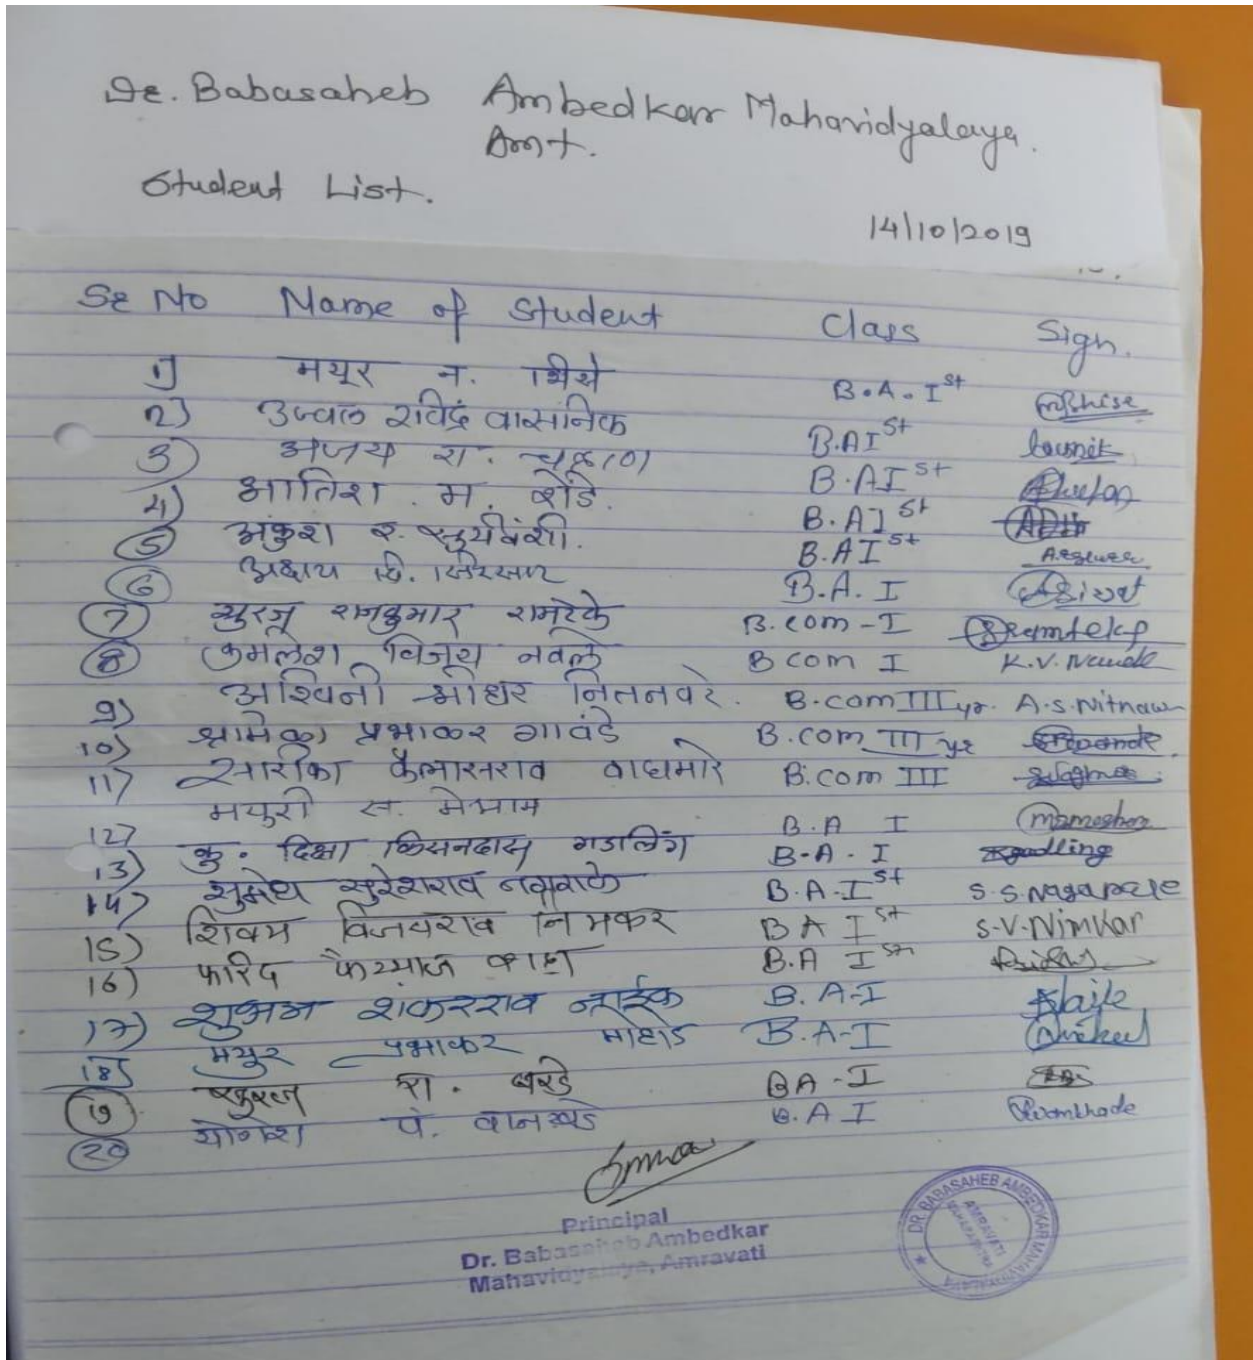 Dr. Babasaheb Ambedkar Mahavidyalaya.
Amt.
Student List.
14/10/2019
Sr No Name of Student Class Sign.
1) मयूर न. भिसे B.A. Ist
2) उज्वल रविंद्र वासनिक B.A Ist
3) अजय रा. B.A Ist
4) आतिश म. शेंडे. B.A Ist
5 अंकुश र. सुर्यवंशी. B.A Ist
6 अक्षय वि. B.A. I
7 सुरज राजकुमार रामटेके B.com - I Ramteke
8 कमलेश विजय नवले B com I K.V. Nawale
9) अश्विनी श्रीधर नितनवरे. B.com III yr. A.S. Nitnaware
10) प्रभाकर गावंडे B.com III yr
11) सारीका कैलासराव वाघमारे B.com III
12) मयुरी स. मेश्राम B.A I
13) कु. दिक्षा किसनदास गडलिंग B-A-I gadling
14) सुमेध सुरेशराव नगराळे B.A-Ist S.S.Nagarale
15) शिवम विजयराव निमकर B A Ist S.V. Nimkar
16) फरिद B.A I
17) शुभम शंकरराव नाईक B.A-I Naik
18) मयुर प्रभाकर B.A-I
19 रा. BA-I
20 योगेश पं. वानखडे B.A I Wankhade
Principal
Dr. Babasaheb Ambedkar
Mahavidyalaya, Amravati
DR. BABASAHEB AMBEDKAR MAHAVIDYALAYA
AMRAVATI